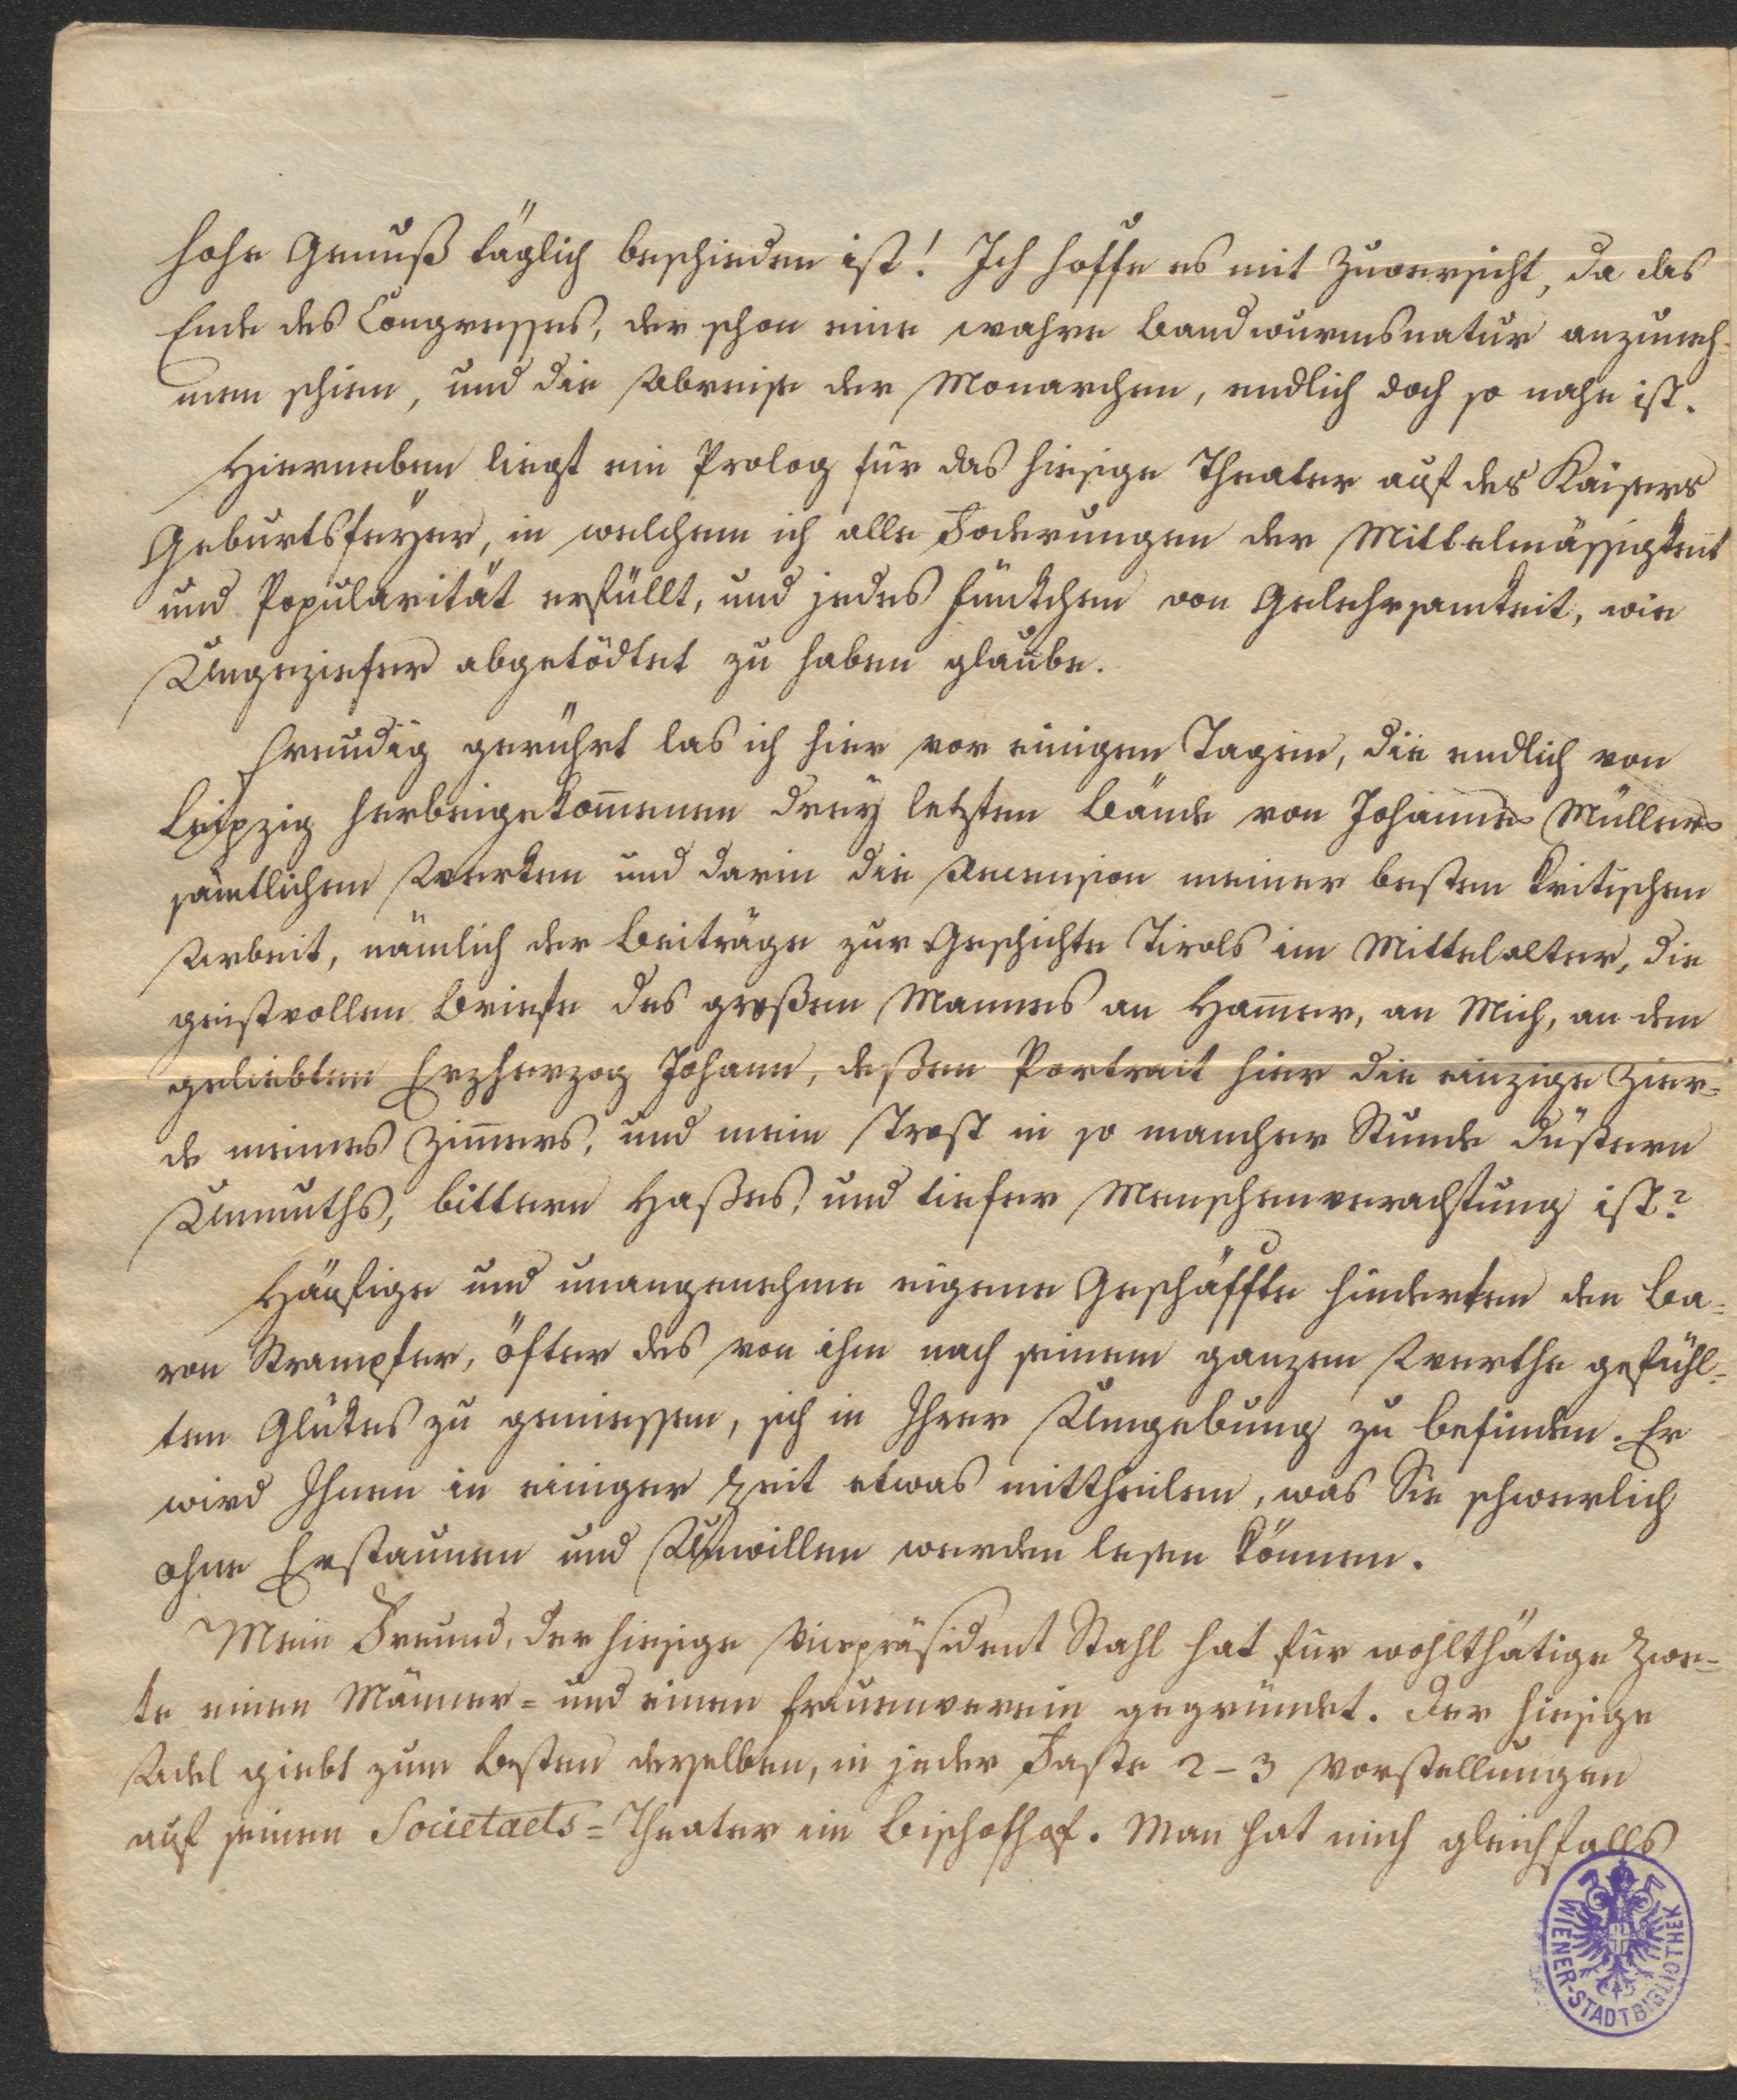 hohe Genuß täglich beschieden ist! Ich hoffe es mit Zuversicht, da das
Ende des Congresses, der schon eine wahre Bandwurmsnatur anzuneh-
men schien, und die Abreise der Monarchen, endlich doch so nahe ist.
Hierneben liegt ein Prolog für das hiesige Theater auf des Kaisers
Geburtsfeyer, in welchem ich alle Foderungen der Mittelmässigkeit
und Popularität erfüllt, und jedes Fünkchen von Gelehrsamkeit, wie
Ungeziefer abgetödtet zu haben glaube.
Freudig gerührt las ich hier vor einigen Tagen, die endlich von
Leipzig herbeigekom̄enen drey letzten Bände von Johannes Müllers
sämtlichen Werken und darin die Recension meiner besten kritischen
Arbeit, nämlich der Beiträge zur Geschichte Tirols im Mittelalter, die
geistvollen Briefe des großen Mannes an Ham̄er, an Mich, an den
geliebten Erzherzog Johann, deßen Portrait hier die einzige Zier-
de meines Zim̄ers, und mein Trost in so mancher Stunde düstern
Unmuths, bittern Haßes, und tiefer Menschenverachtung ist?
Häufige und unangenehme eigene Geschäffte hinderten den Ba-
ron Strampfer, öfter des von ihm nach seinem ganzen Werthe gefühl-
ten Glükes zu geniessen, sich in Ihrer Umgebung zu befinden. Er
wird Ihnen in einiger Zeit etwas mittheilen, was Sie schwerlich
ohne Erstaunen und Unwillen werden lesen können.
Mein Freund, der hiesige Vicepräsident Stahl hat für wohlthätige Zwe-
ke einen Männer- und einen Frauenverein gegründet. Der hiesige
Adel giebt zum Besten derselben, in jeder Faste 2-3 Vorstellungen
auf seinem Societaets-Theater im Bischofhof. Man hat mich gleichfalls
WIENER-STADTBIBLIOTHEK